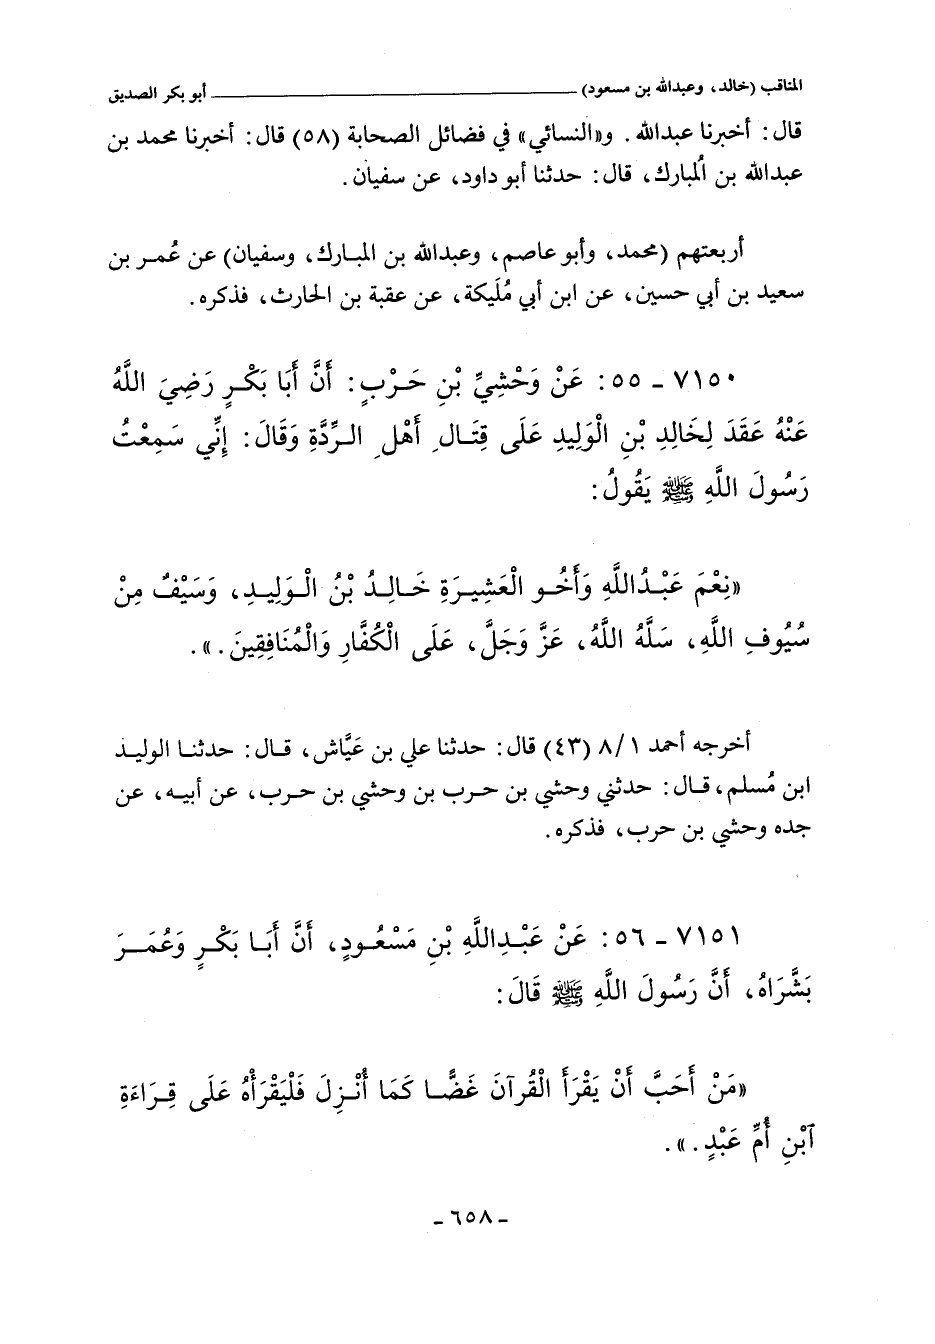 المناقب (خالد، وعبدالله بن مسعود) ــــــــــــــــــــــــــــــــــــــــــــ أبو بكر الصديق
قال: أخبرنا عبدالله. و«النسائي» في فضائل الصحابة (٥٨) قال: أخبرنا محمد بن
عبدالله بن المُبارك، قال: حدثنا أبو داود، عن سفيان.
أربعتهم (محمد، وأبو عاصم، وعبدالله بن المبارك، وسفيان) عن عُمر بن
سعيد بن أبي حسين، عن ابن أبي مُلَيكة، عن عقبة بن الحارث، فذكره.
٧١٥٠ - ٥٥: عَنْ وَحْشِيِّ بْنِ حَرْبٍ: أَنَّ أَبَا بَكْرٍ رَضِيَ اللَّهُ
عَنْهُ عَقَدَ لِخَالِدِ بْنِ الْوَلِيدِ عَلَى قِتَالِ أَهْلِ الرِّدَّةِ وَقَالَ: إِنِّي سَمِعْتُ
رَسُولَ اللَّهِ ﷺ يَقُولُ:
«نِعْمَ عَبْدُاللَّهِ وَأَخُو الْعَشِيرَةِ خَالِدُ بْنُ الْوَلِيدِ، وَسَيْفٌ مِنْ
سُيُوفِ اللَّهِ، سَلَّهُ اللَّهُ، عَزَّ وَجَلَّ، عَلَى الْكُفَّارِ وَالْمُنَافِقِينَ.».
أخرجه أحمد ٨/١ (٤٣) قال: حدثنا علي بن عَيَّاش، قال: حدثنا الوليد
ابن مُسلم، قال: حدثني وحشي بن حرب بن وحشي بن حرب، عن أبيه، عن
جده وحشي بن حرب، فذكره.
٧١٥١ - ٥٦: عَنْ عَبْدِاللَّهِ بْنِ مَسْعُودٍ، أَنَّ أَبَا بَكْرٍ وَعُمَرَ
بَشَّرَاهُ، أَنَّ رَسُولَ اللَّهِ ﷺ قَالَ:
«مَنْ أَحَبَّ أَنْ يَقْرَأَ الْقُرآنَ غَضًّا كَمَا أُنْزِلَ فَلْيَقْرَأْهُ عَلَى قِرَاءَةِ
آبْنِ أُمِّ عَبْدٍ.».
- ٦٥٨ -